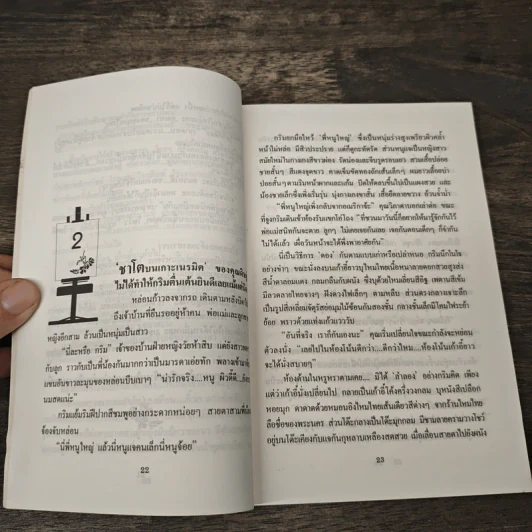 2
'ชาโตบนเกาะเนรมิต' ของคุณ
ไม่ได้ทำให้กริมตื่นเต้นยินดีเลยแม้แต่
หล่อนก้าวลงจากรถ เดินตามหลัง
ถึงเจ้าบ้านที่ยืนรออยู่หัวคน พ่อแม่และลูก
หญิงอีกสาม ล้วนเป็นหนุ่มเป็นสาว
"นี่ละหรือ กริม" เจ้าของบ้านฝ่ายหญิงวัยห้าสิบ
กับลูก ราวกับเป็นพี่น้องกันมากกว่าเป็นมารดาเอ่ยทัก พลาง
แขนดันขาวละมุนของหล่อนบีบเบาๆ "น่ารักจริง...หนู ผิวดี๊ดี
นมสดแน่ะ"
กริมแย้มริมฝีปากสีชมพูอย่างกระดากหน่อยๆ สายตาสาม
จ้องจับหล่อน
"นี่พี่หนูใหญ่ แล้วนี่หนูแขคนเล็กนี่หนูจ้อย"
22
กริมยกมือไหว้ 'พี่หนูใหญ่' ซึ่งเป็นหนุ่มร่างสูงเพรียวผิวคล้ำ
หน้าไม่หล่อ มีสิวประปราย แต่ก็ดูกะทัดรัด ส่วนหนูแขเป็นหญิงสาว
สมัยใหม่ในกางเกงสีขาวฟอง รัดน่องและจีบรูดรอบเอว สวมเสื้อปล่อย
ชายสั้นๆ สีแดงชาด คาดเข็มขัดทองถักเส้นเล็กๆ ผมยาวเลื้อยบ่า
ปอยสั้นๆ ตามริมหน้าผากและแก้ม ปัดให้ตลบขึ้นไปเป็นแผงสวย และ
น้องชายเล็กซึ่งเพิ่งเริ่มรุ่น นุ่งกางเกงขาสั้น เสื้อยืดลายขวาง อ้วนจ้ำม่ำ
"พี่หนูใหญ่เพิ่งกลับจากอเมริกาจ้ะ" คุณวิภาดาบอกกริมต่อ ขณะ
ที่จูงกริมเดินเข้าห้องรับแขกโอ่โถง "ที่ชวนมาวันนี้ก็อยากให้นะรู้จักกันไว้
พ่อแม่สนิทกันจะตาย ลูกๆ ไม่เคยเจอกันเลย เจอกันตอนเด็กๆ ก็จำกัน
ไม่ได้แล้ว เผื่อวันหน้าจะได้พึ่งพาอาศัยกัน"
นี่เป็นวิธีการ 'ดอง' กันตามแบบเก่าหรือเปล่าหนอ กริมนึกในใจ
อย่างขำๆ ขณะนั่งลงบนเก้าอี้ยาวบุไหมไทยเนื้อหนาลายดอกสวยสูงส่ง
สีน้ำตาลอมแดง กลมกลืนกับผนัง ซึ่งบุด้วยไหมเลื่อนสีอิฐ เพดานสีเข้ม
มีลวดลายไทยจางๆ ดึงดวงไฟเล็กๆ ตามหลืบ ส่วนตรงกลางเจาะลึก
เป็นรูปสี่เหลี่ยมจัตุรัสย่อมุมไม้ซ้อนกันสองชั้น กลางชั้นเล็กมีโคมไฟระย้า
ก้อย พราวด้วยแท่งแก้วแวววับ
"อันที่จริง เราก็กันเองนะ" คุณเริ่มเปลี่ยนใจขณะกำลังจะหย่อน
ตัวลงนั่ง "เลยไปในห้องโน้นดีกว่า...ดีกว่าไหม...ห้องโน้นเก้าอี้ยาว
จะได้นั่งสบายๆ"
ห้องด้านในหรูหราตามเคย... มิได้ 'ลำลอง' อย่างกริมคิด เพียง
แต่ว่าเก้าอี้นั่งเปลี่ยนไป กลายเป็นเก้าอี้โค้งครึ่งวงกลม บุหนังสีเปลือก
หอยมุก ดาดาดด้วยหมอนอิงไหมไทยเส้นเดียวสีต่างๆ จากร้านไหมไทย
ลือชื่อของพระนคร ส่วนโต๊ะกลางเป็นโต๊ะมุกกลม มีชามลายครามวางโชว์
อยู่บนโต๊ะเคียงกับแจกันกุหลาบเหลืองสดสวย เมื่อเลื่อนสายตาไปยังผนัง
23